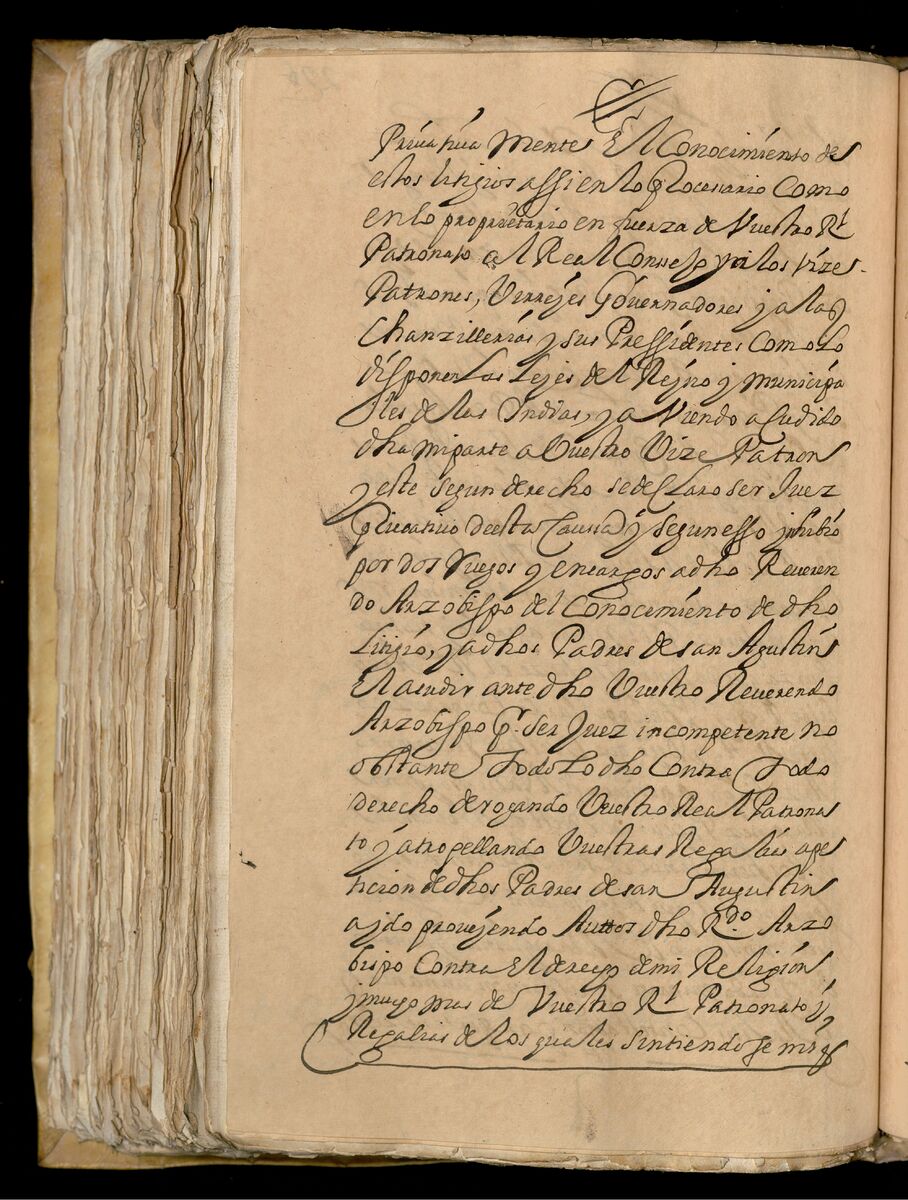 Priuatiua Mente El Conocimiento de
estos litigios assi en lo posesario Como
en lo proprietario en fuerza de Vuestro Rl
Patronato al Real Conssejo y a los Vizes
Patrones, Virreyes Gouernadores y a las
Chanzillerias y sus Pressidentes Como lo
disponen Las Leyes del Reyno y Municipa
les de las Indias, y a Viendo a Cudido
dha mi parte a Vuestro Vize Patron
y este segun derecho se de Claro ser Juez
priuatiuo de esta Causa y segun esso inhibio
por dos Ruegos y encargos a dho Reueren
do Arzobispo del Conocimiento de dho
Litigio, y a dhos Padres de san Agustin
El acudir ante dho Vuestro Reuerendo
Arzobispo pr. ser Juez incompetente no
obstante Todo Lo dho Contra Todo
derecho derogando Vuestro Real Patrona
to y atropellando Vuestras Regalias a pe
ticion de dhos Padres de san Augustin
a ydo proueyendo Auttos dho Rdo. Arzo
bispo Contra El derecho de mi Religion
y mucho mas de Vuestro Rl Patronato y
Regalias de los quales sintiendose mi